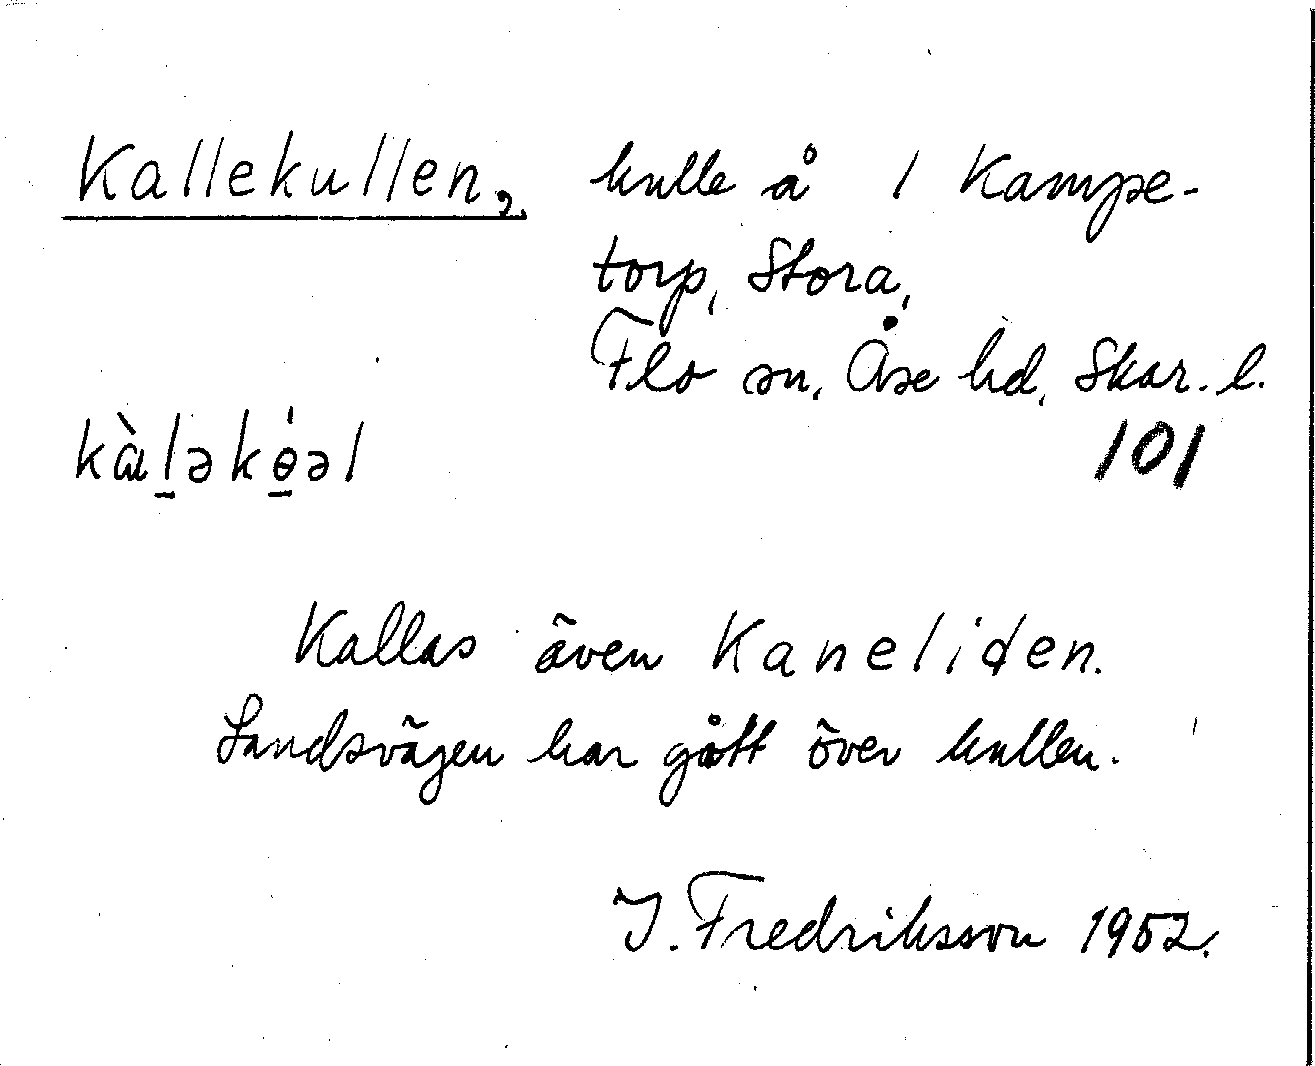 Kallekullen, kulle å 1 Kampe-
torp, Stora,
Flo sn, Åse hd, Skar. l.
kàl̠əkɵ̠́əl 101
Kallas även Kaneliden.
Landsvägen har gått över kullen.
I. Fredriksson 1952.